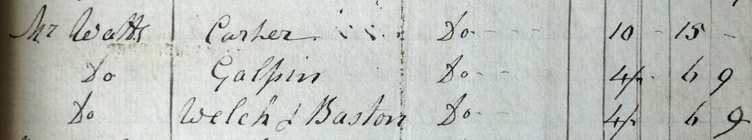 Mr Watts Carter Do 10 - 15 -
Do Galpin Do 4 6 9
Do Welch & Baston Do 4 6 9